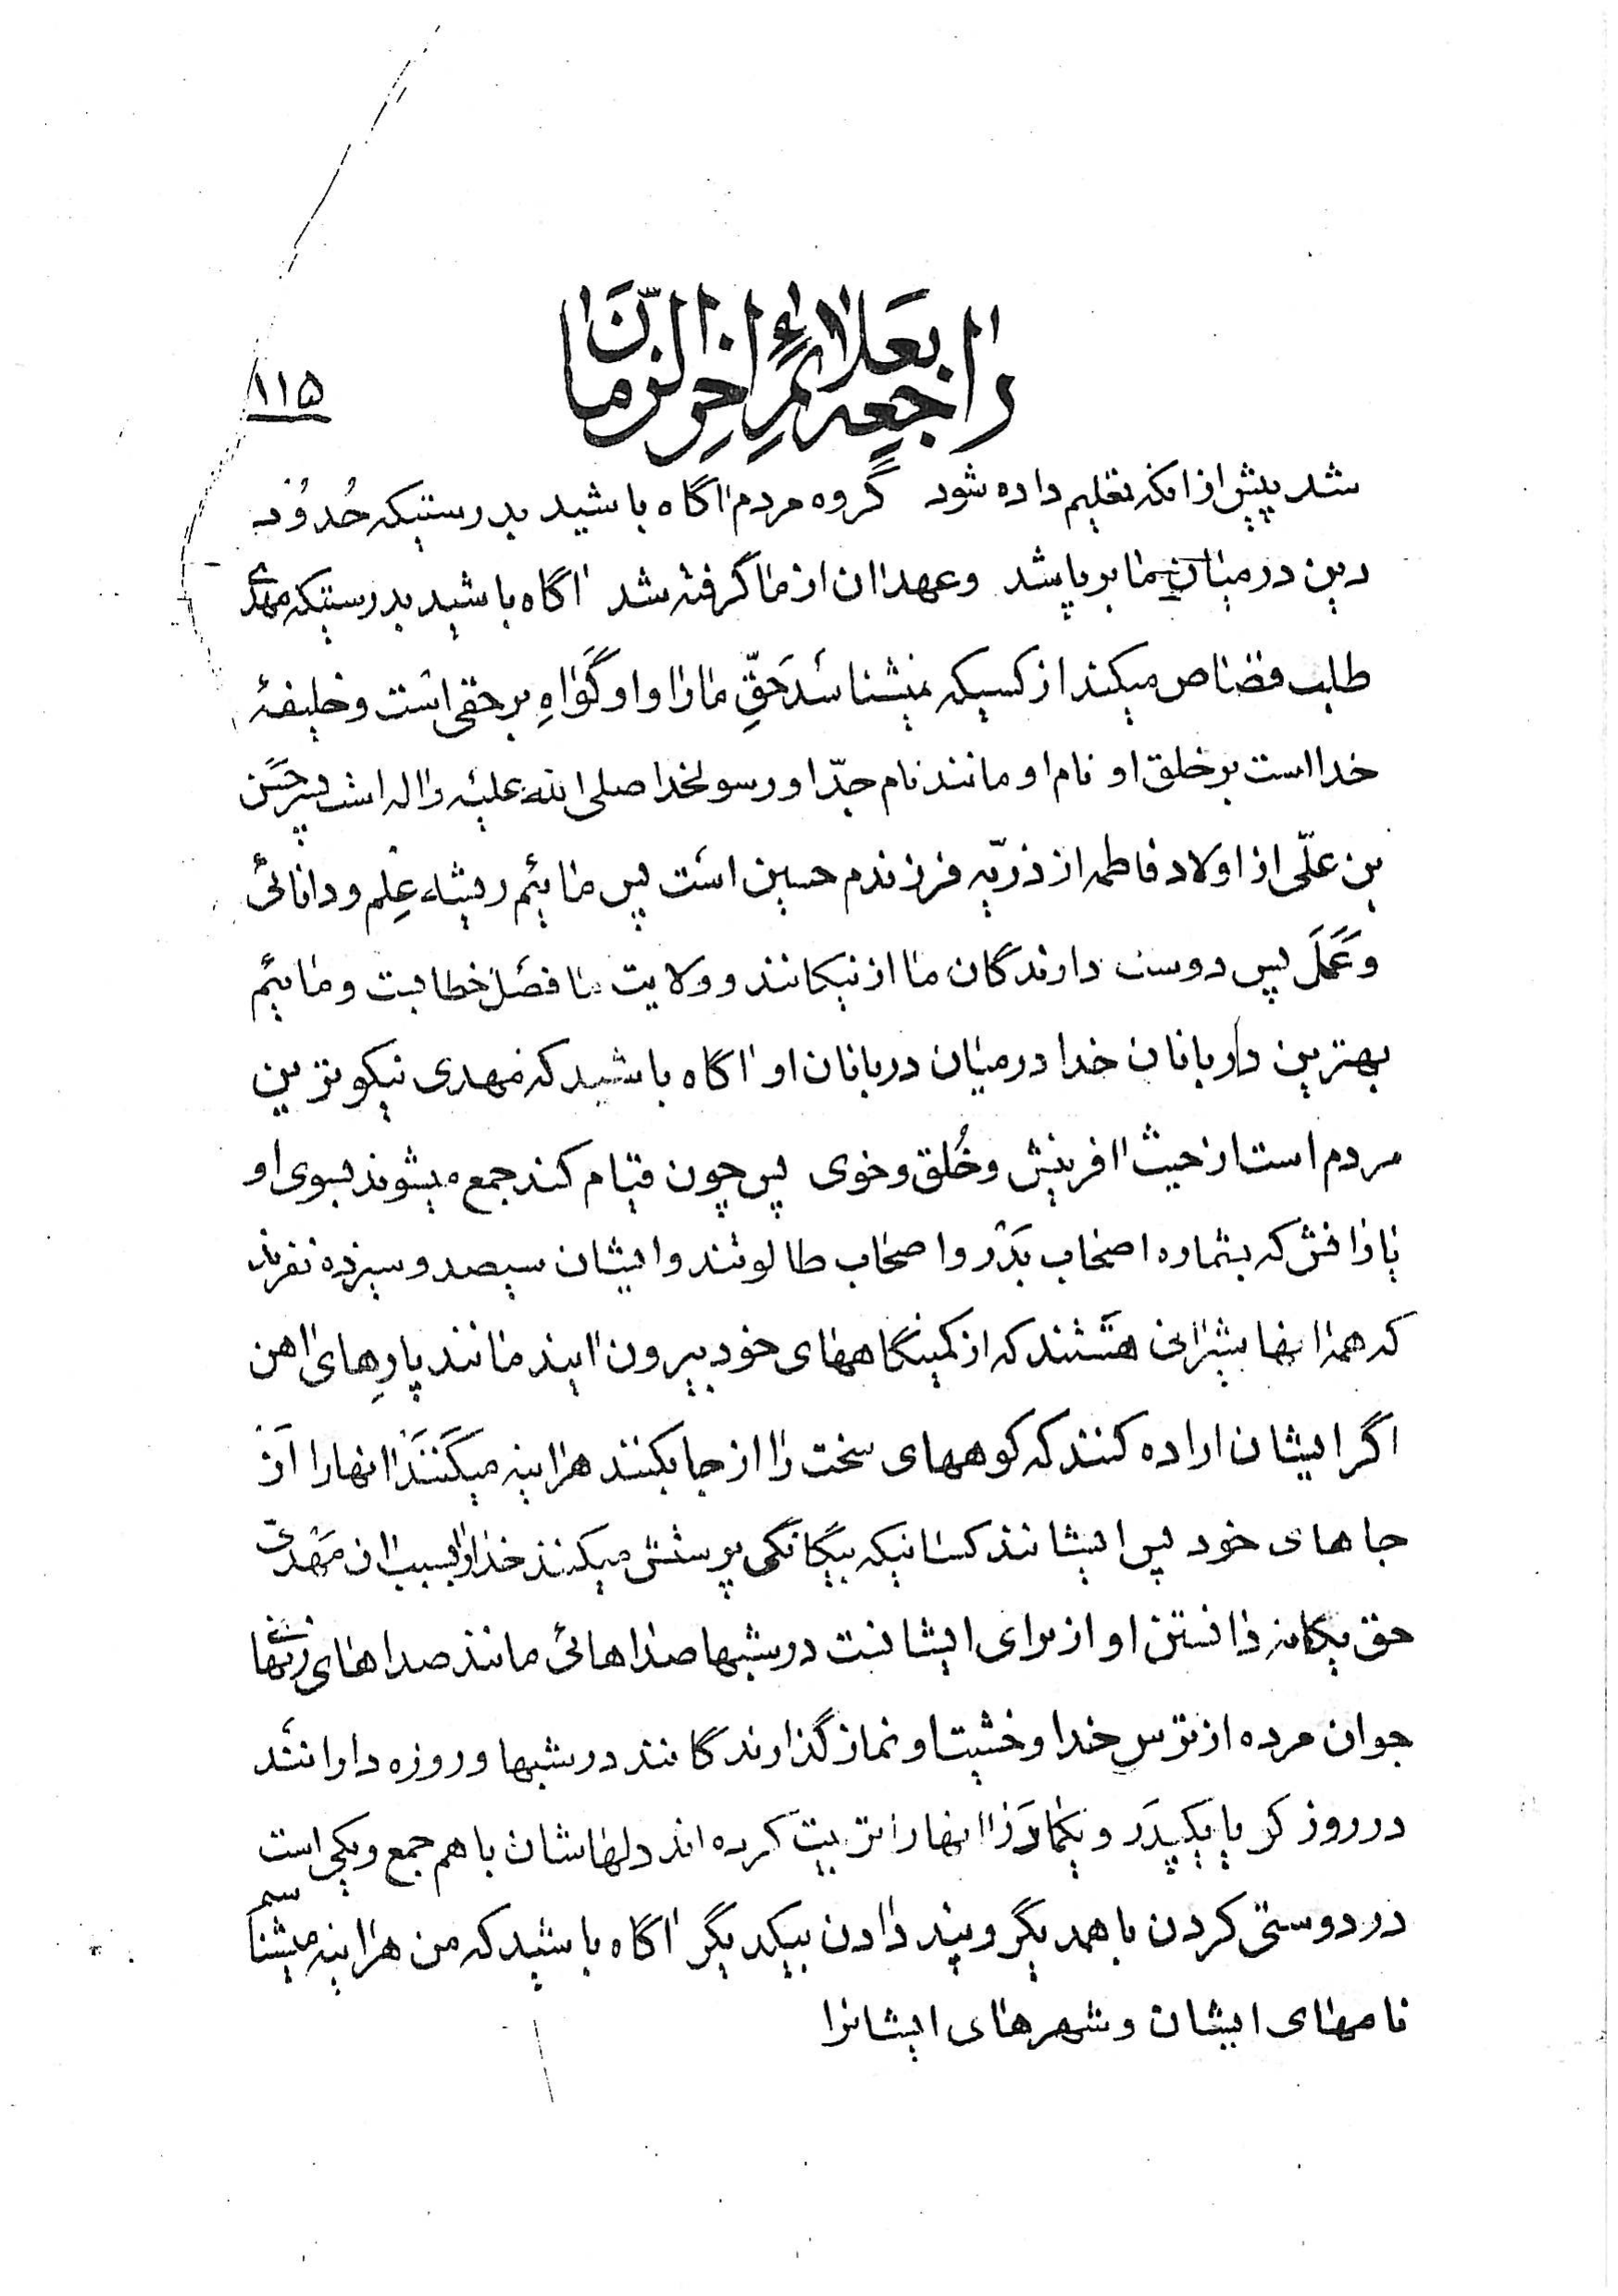 راجعه بعلائم اخر الزمان
۱۱۵
شد پیش از انکه تعلیم داده شود گروه مردم اگاه باشید بدرستیکه حُدوُد
دین در میان ما برپا شد و عهد ان از ما گرفته شد اگاه باشید بدرستیکه مهدی
طلب قصاص میکند از کسیکه نمیشناسَد حَقِّ ما را و او گَواهِ بر حق است و خلیفهٔ
خدا است بر خلق او نام او مانند نام جدّ او رسولخدا صلی الله علیه و اله است پسر حَسَن
بن علّی از اولاد فاطمه از ذرّیه فرزندم حسین است پس مائیم ریشه عِلم و دانائی
و عَمَل پس دوست دارندگان ما از نیکانند و ولایت ما فصَل خطابت و مائیم
بهترین داربانان خدا در میان دربانان او اگاه باشید که مهدی نیکوترین
مردم است از حیث افرینش و خُلق و خوی پس چون قیام کند جمع میشوند بسوی او
یارانش که بشماره اصحاب بَدْر و اصحاب طالوتند و ایشان سیصد و سیزده نفرند
که همه انها شیرانی هَستند که از کمینگاههای خود بیرون ایند مانند پارِهای اهن
اگر ایشان اراده کنند که کوههای سخت را از جا بکنند هراینه میکَنَنَد انها را اَز
جاهای خود پس ایشانند کسانیکه بیگانگی پرستش میکنند خدا را بسبب ان مَهْدیّ
حق یگانه دانستن او از برای ایشانست در شبها صداهائی مانند صداهای زنهای
جوان مرده از ترس خدا و خشیت او نماز گذارندگانند در شبها و روزه دارانَند
در روز که یا یکپِدَر و یکمادَر انها را تربیت کرده اند دلهاشان با هم جمع و یکی است
در دوستی کردن با همدیگر و پند دادن بیکدیگر اگاه باشید که من هراینه میشناسم
نامهای ایشان و شهرهای ایشانرا